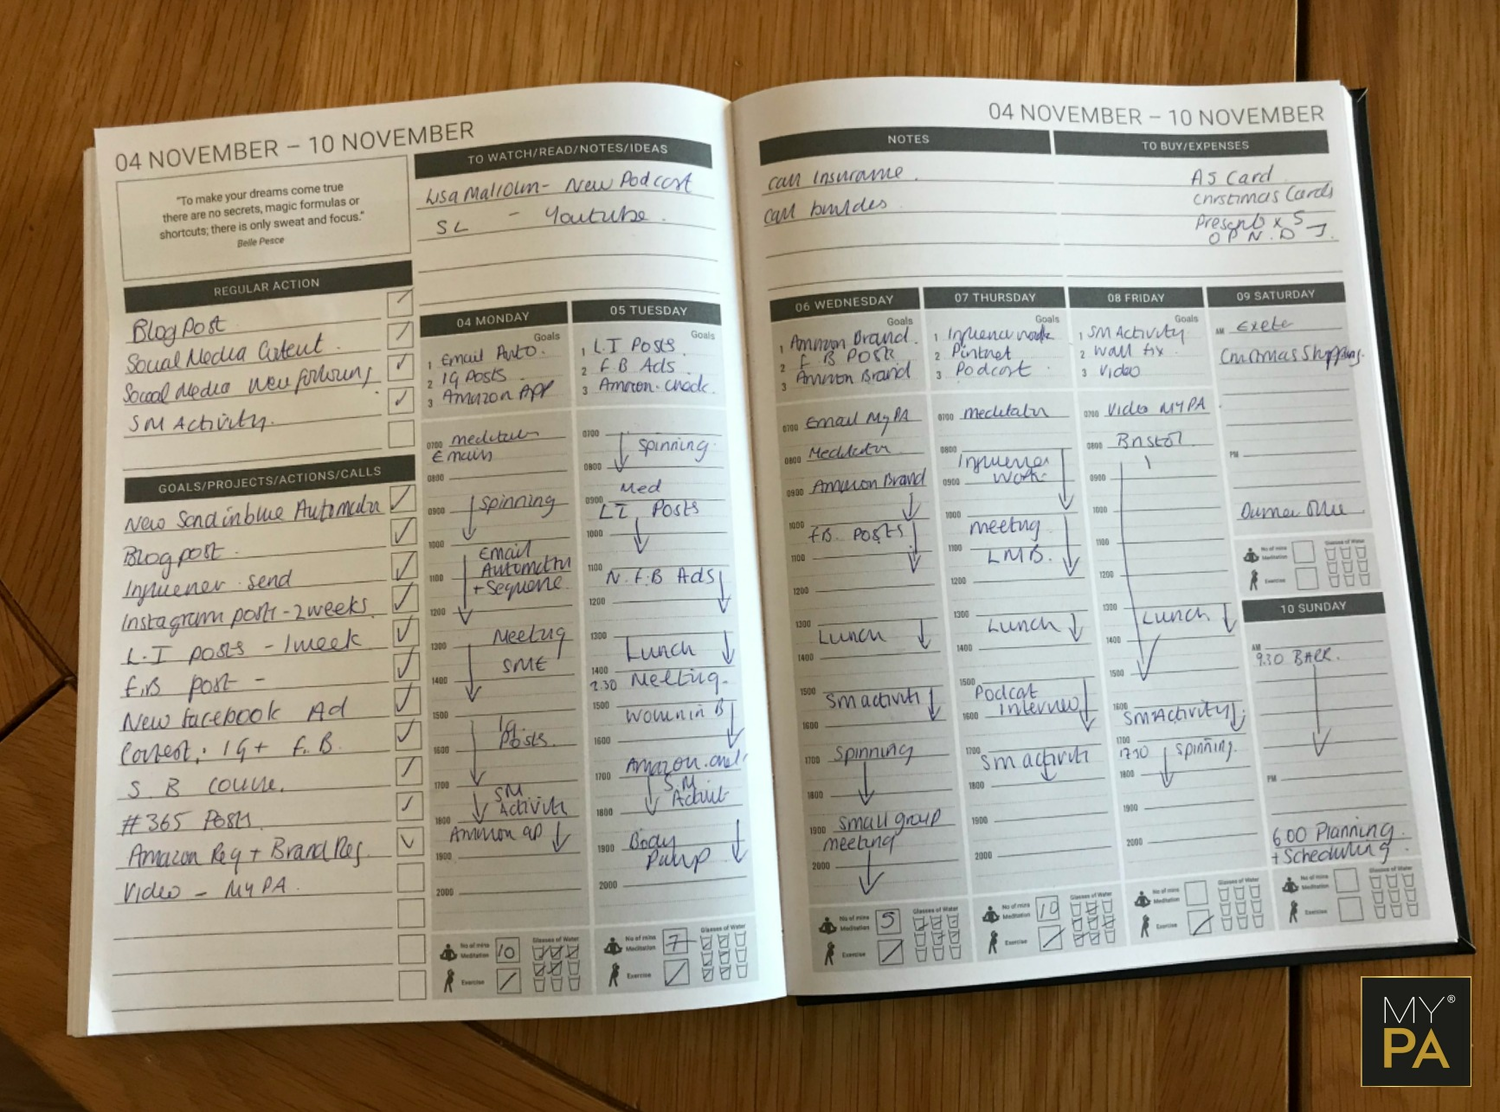 04 NOVEMBER – 10 NOVEMBER
"To make your dreams come true
there are no secrets, magic formulas or
shortcuts; there is only sweat and focus."
Belle Pesce
REGULAR ACTION
Blog Post
Social Media Content.
Social Media new following
SM Activity.
GOALS/PROJECTS/ACTIONS/CALLS
New Sendinblue
Blog post.
Influencer send
Instagram posts - 2 weeks
L.I posts - 1 week
F.B post -
New Facebook Ad
Contest: IG + F.B.
S B course.
#365 Posts.
Amazon Reg + Brand Reg.
Video - MyPA.
TO WATCH/READ/NOTES/IDEAS
Lisa Malcolm - New Podcast
SL - Youtube.
04 MONDAY
Goals
1 Email Auto.
2 IG Posts.
3 Amazon APP
0700
Emails
0800
0900 Spinning
1000 Email
1100
+ Sequence.
1200
1300 Meeting
SME
1400
1500 IG
1600 Posts.
1700 SM
Activity
1800 Amazon ap
1900
2000
No of mins
Meditation 10
Glasses of Water
Exercise
05 TUESDAY
Goals
1 L.I Posts
2 F.B Ads.
3 Amazon check.
0700 Spinning.
0800
Med
0900 LI Posts
1000
1100 N.F.B Ads
1200
1300 Lunch
1400
2.30 Meeting.
1500 Women in B
1600
1700 Amazon
S.M
1800
1900 Body
Pump
2000
No of mins
Meditation 7
Glasses of Water
Exercise
04 NOVEMBER – 10 NOVEMBER
NOTES
call Insurance.
call builders.
TO BUY/EXPENSES
A5 Card
Christmas Cards
Presents x 5
O P N. D J.
06 WEDNESDAY
Goals
1 Amazon Brand.
2 F B Posts
3 Amazon Brand
0700 Email MyPA
0800
0900 Amazon Brand
1000 F.B. Posts
1100
1200
1300 Lunch
1400
1500 Sm activity
1600
1700 Spinning
1800
1900 Small group
meeting
2000
No of mins
Meditation 5
Glasses of Water
Exercise
07 THURSDAY
Goals
1 Influencer
2
3 Podcast
0700
0800 Influencer
0900 Work
1000 meeting
1100 LMB.
1200
1300 Lunch
1400
1500 Podcast
1600 Interview
1700 Sm activity
1800
1900
2000
No of mins
Meditation 10
Glasses of Water
Exercise
08 FRIDAY
Goals
1 SM Activity
2 Wall fix.
3 Video
0700 Video MYPA
0800 Bristol
0900
1000
1100
1200
1300 Lunch
1400
1500
1600 Sm Activity
1700
17.30 Spinning.
1800
1900
2000
No of mins
Meditation
Glasses of Water
Exercise
09 SATURDAY
AM
Christmas Shopping.
PM
No of mins
Meditation
Glasses of Water
Exercise
10 SUNDAY
AM
9.30
PM
6.00 Planning.
+ Scheduling.
No of mins
Meditation
Glasses of Water
Exercise
MY®
PA